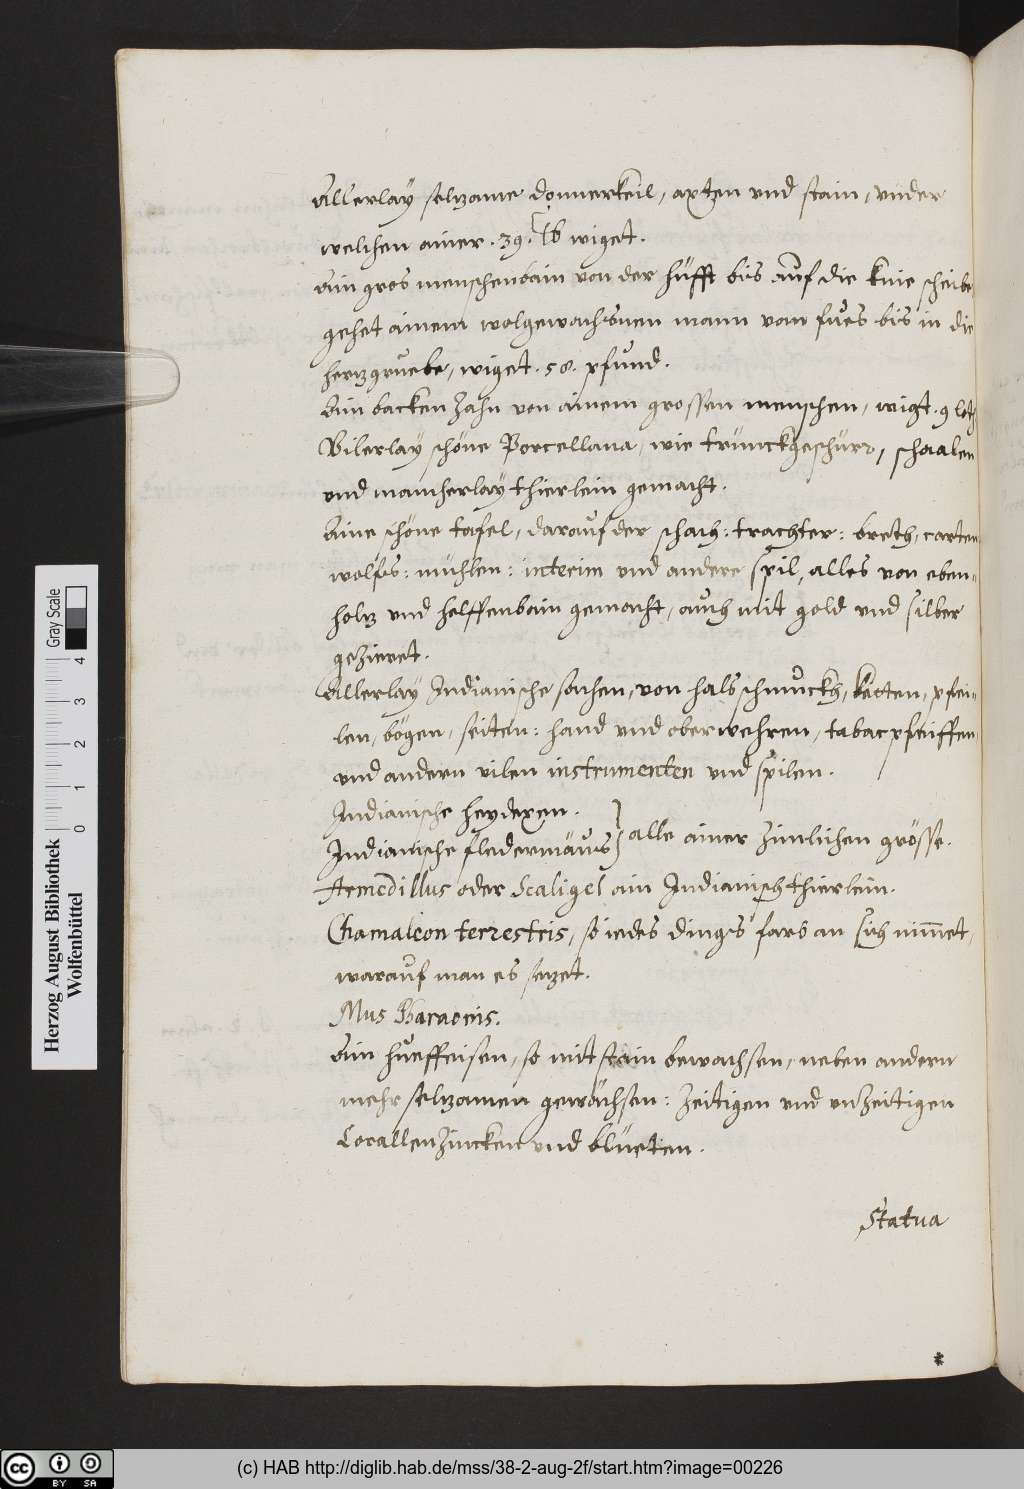 Allerlaÿ selzame donnerkeil, axten und stain, under
welchen ainer . 39. lb wiget.
Ain gros menschenbain von der hüfft bis auf die knie scheibe
gehet ainem wolgewachsnen mann vom fues bis in die
herzgruebe, wiget . 58. pfund.
Ain backen Zahn von ainem grossen menschen, wigt . 9 loth
Vilerlaÿ schöne Porcellana, wie trünckgeschürr, schaalen
und mancherlaÿ thierlein gemacht.
Aine schöne tafel, darauf der schach: trachter: breth, carten
wolfs: mühlen: interim und andere spil, alles von eben-
holz und helffenbain gemacht, auch mit gold und silber
gezieret.
Allerlaÿ Indianische sachen, von halsschmuckh, ketten, pfei-
len, bögen, seiten: hand und oberwehren, tabacpfeiffen,
und andern vilen instrumenten und spilen.
Indianische heydexen.
Indianische fledermäus} alle ainer zimlichen grösse.
Armodillus oder Scaligel ain Indianisch thierlein.
Chamaleon terrestris, so iedes dings farb an sich nimmet,
warauf man es sezet.
Mus Pharaonis.
Ain hueffeisen, so mit stain bewachsen, neben andern
mehr selzamen gewächsen: Zeitigen und unzeitigen
Corallenzincken und blüeten.
Statua
*
Herzog August Bibliothek
Wolfenbüttel
0 1 2 3 4
Gray Scale
cc BY SA
(c) HAB http://diglib.hab.de/mss/38-2-aug-2f/start.htm?image=00226